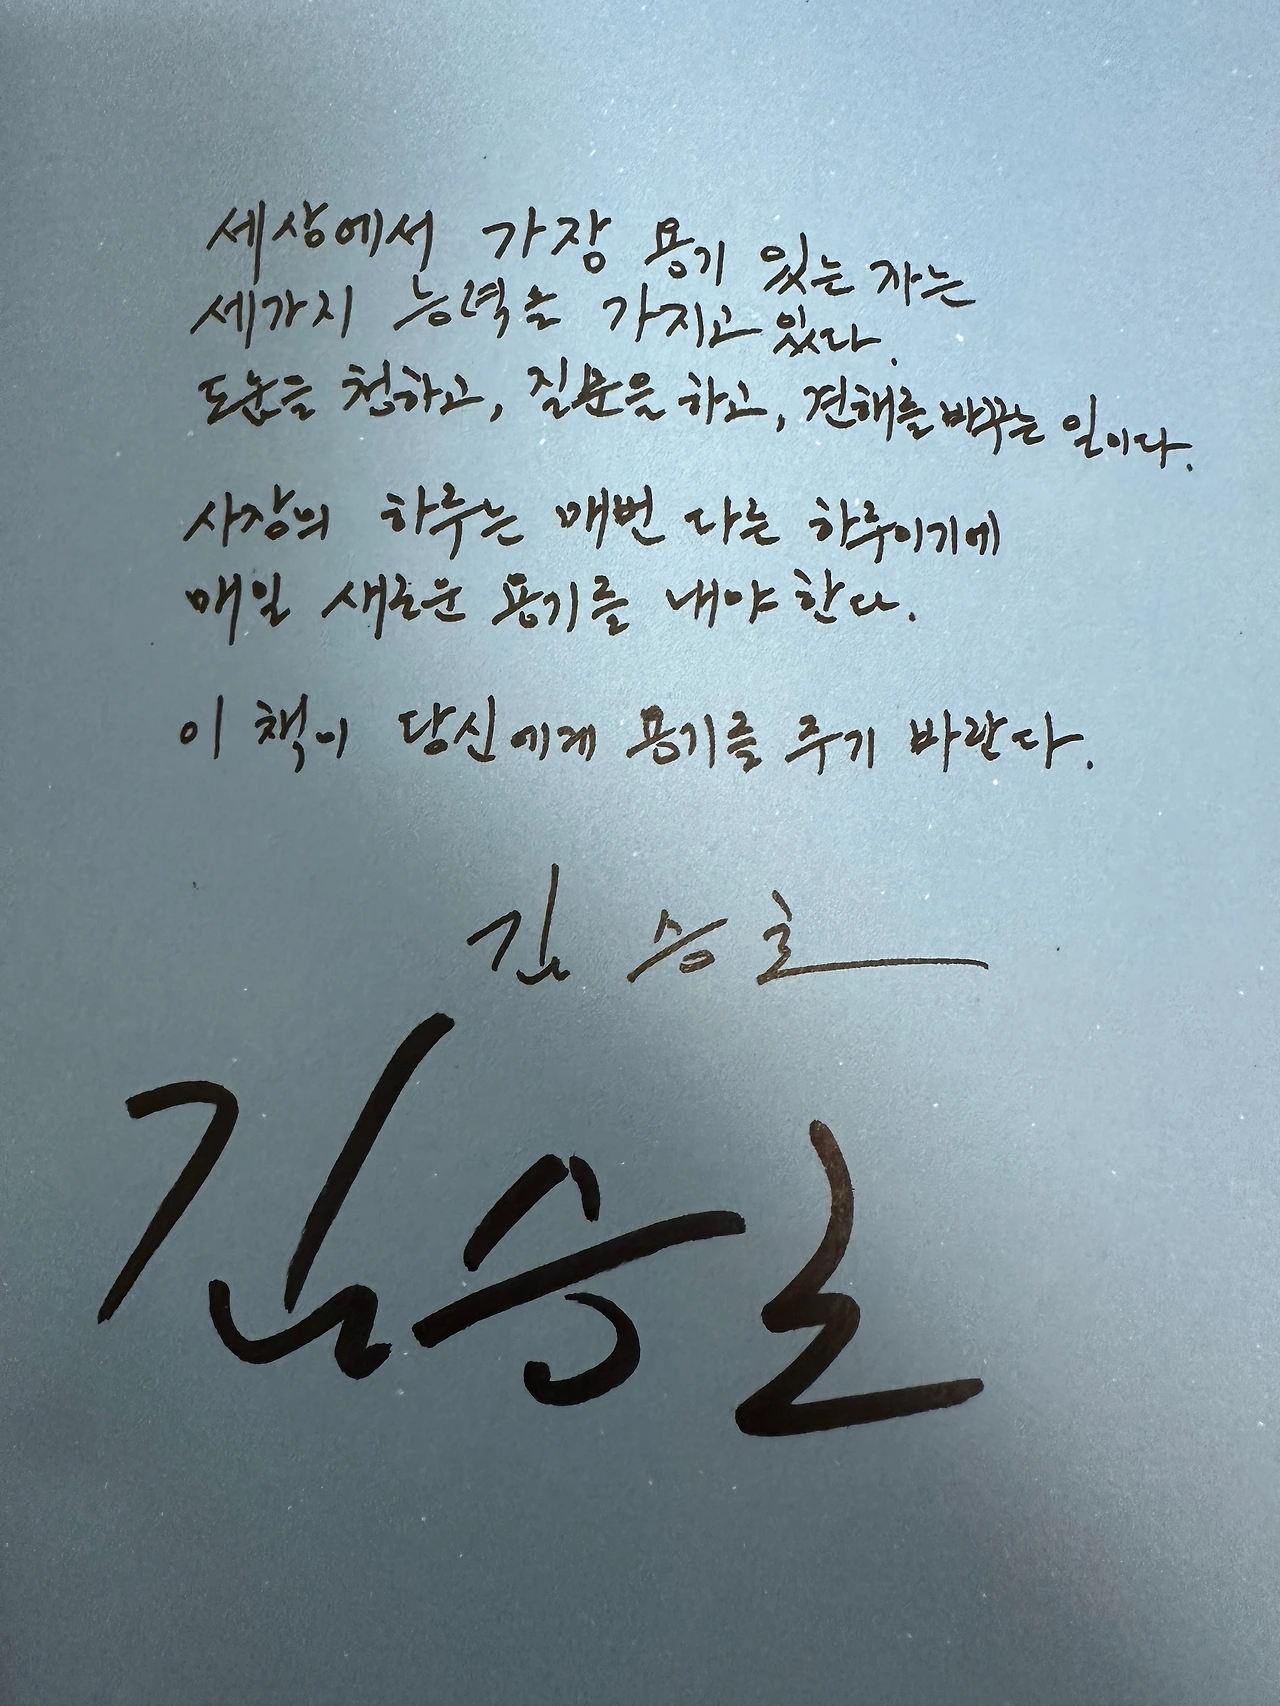 세상에서 가장 용기 있는 자는
세가지 능력을 가지고 있다.
도움을 청하고, 질문을 하고, 견해를 바꾸는 일이다.
사장의 하루는 매번 다른 하루이기에
매일 새로운 용기를 내야 한다.
이 책이 당신에게 용기를 주기 바란다.
김승호
김승호